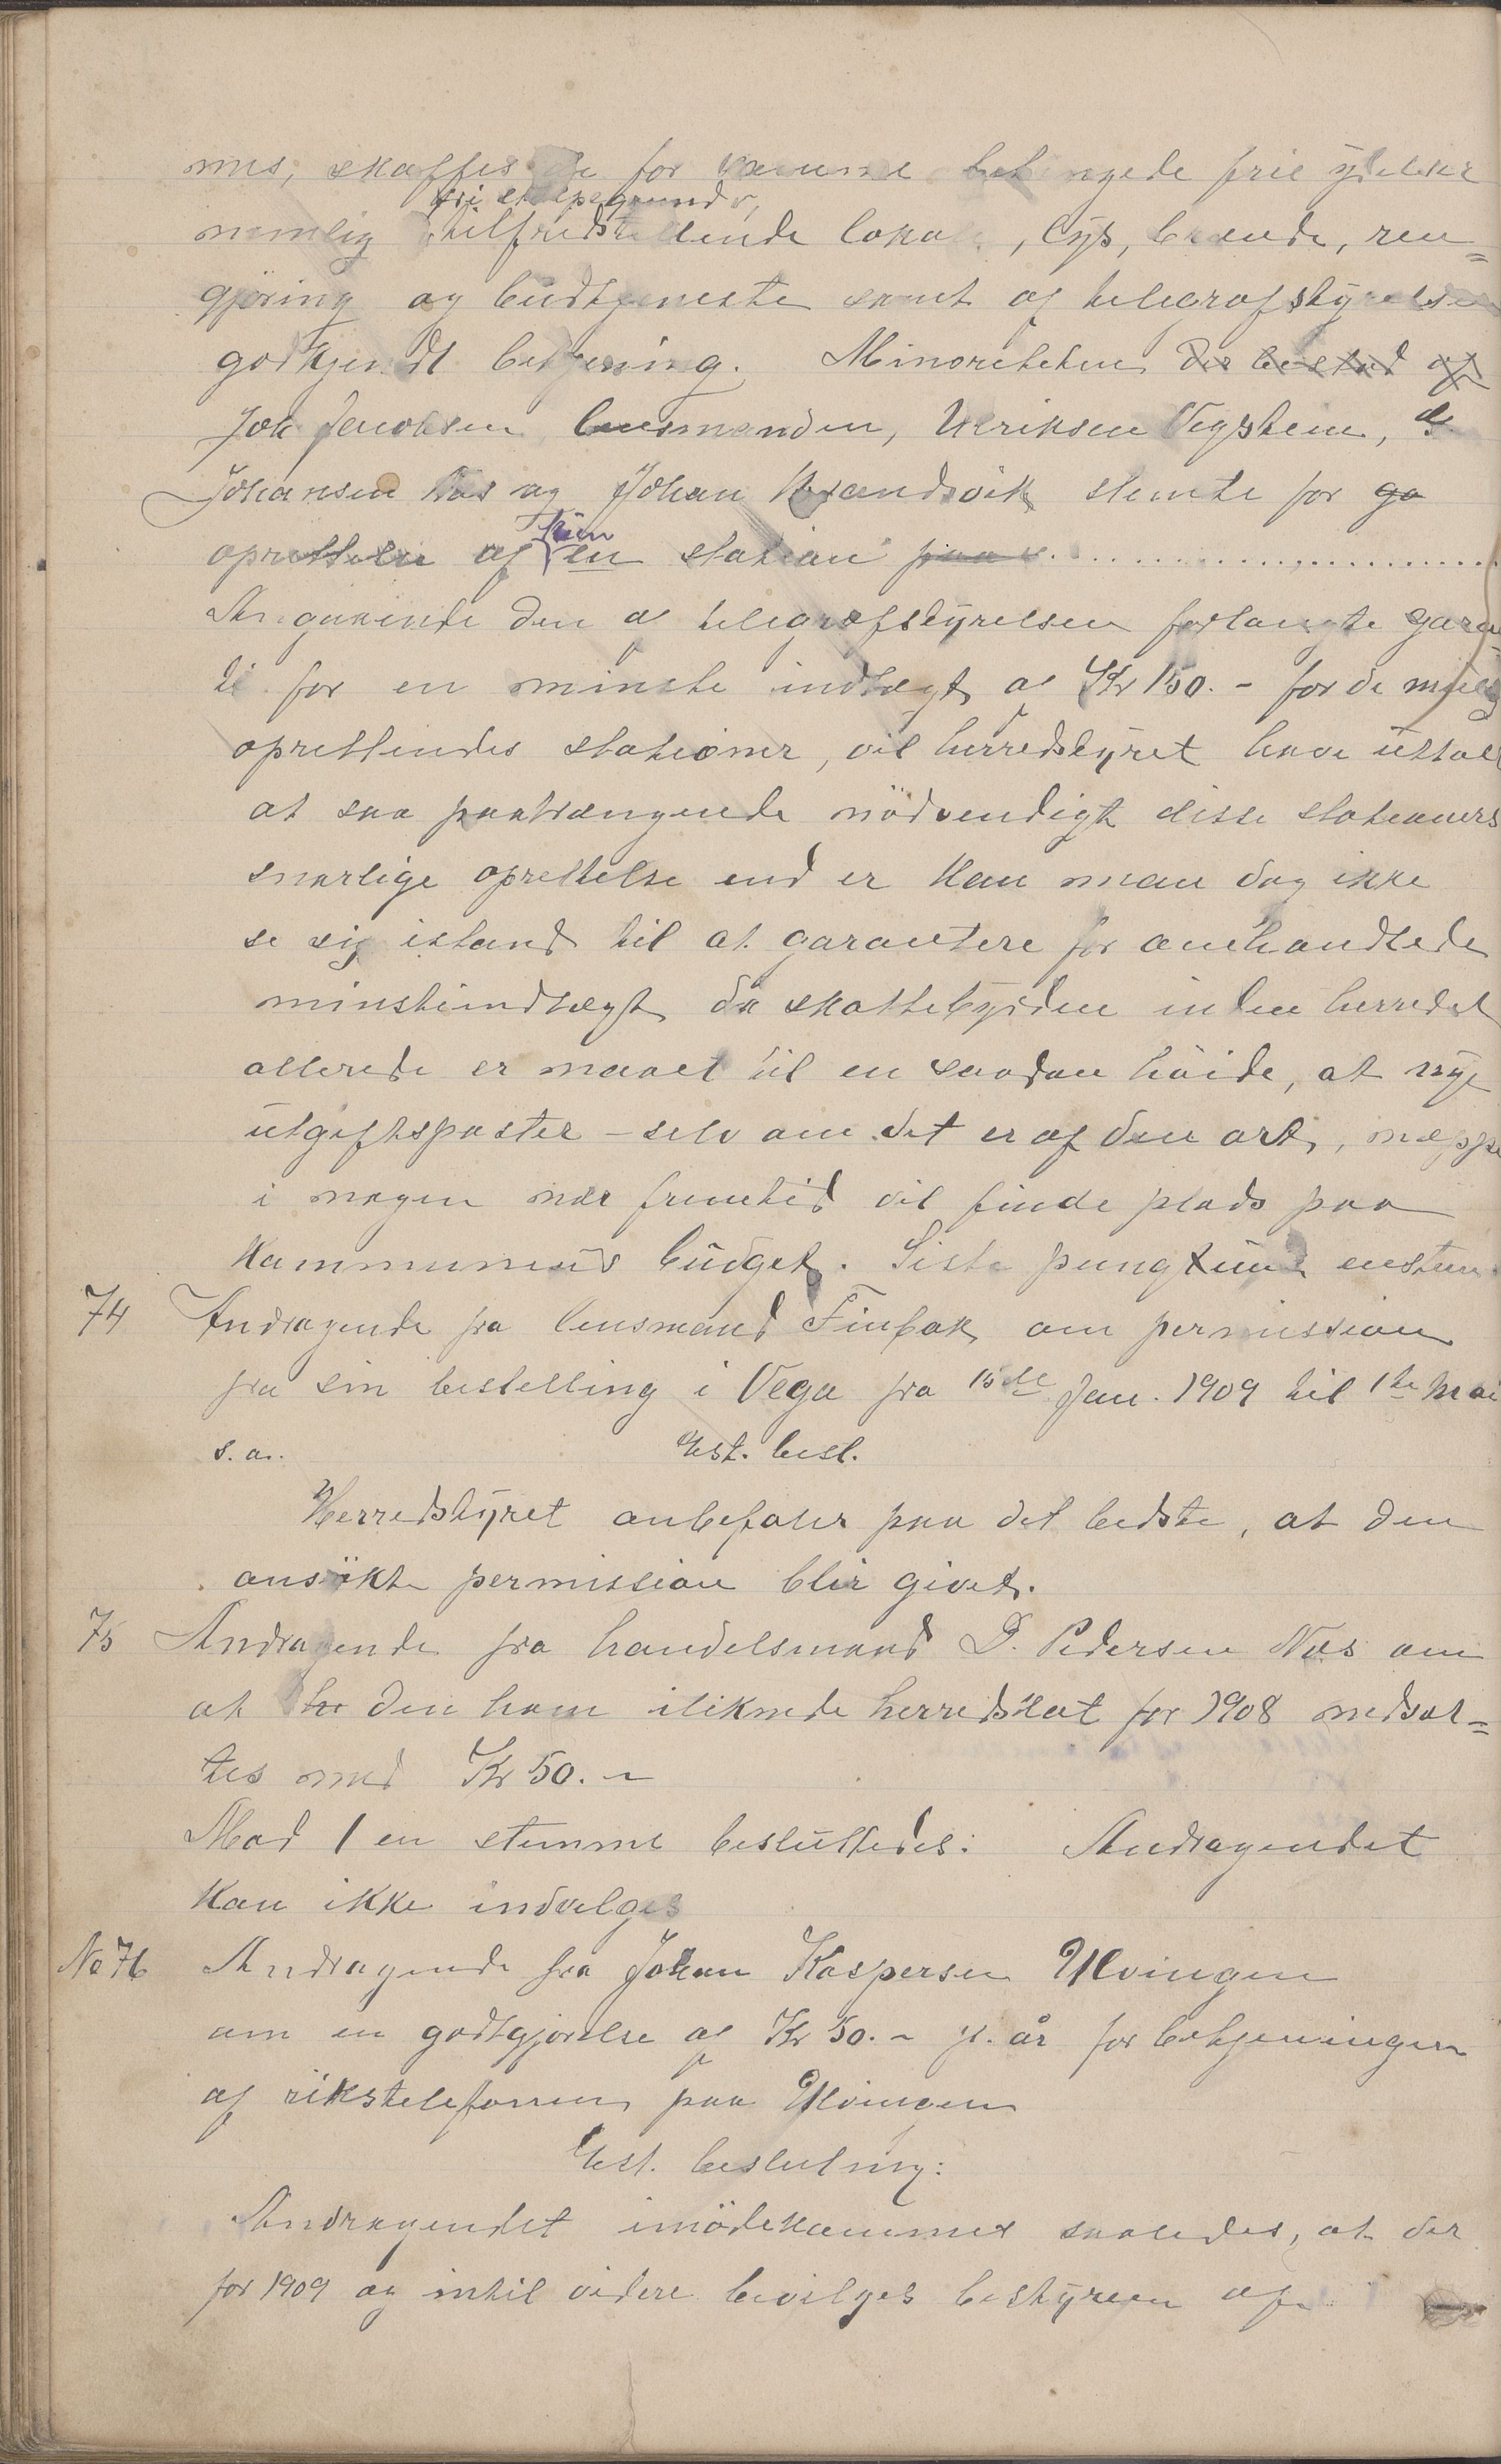 nes, skaffes de for samme betingede frie ydelser
fri stolpegrund,
nemlig tilfredstillende lokale, lys, brænde, ren=
gjøring og budtjeneste samt af telegrafstyrelsen
godkjendt betjening. Minoriteten der bestod af
Joh Jacobsen lensmanden, Ulriksen Vegstein,
Johansen Nes og Johan Brandsvik stemte for go
kun
oprettelse af en station paa ............
Angaaende den af telegrafstyrelsen forlangte garan
ti for en minste indtægt af Kr 150.- for de mulig
oprettendes stationer, vil herredstyret have uttalt
at saa paatrængende nödvendigt disse stationers
snarlige oprettelse end er kan man dog ikke
se sig istand til at garantere for omhandlede
minsteindtægt da skattebyrden inden herredet
allerede er naaet til en saadan höide, at nye
utgiftsposter - selv om det er af den art, neppe
i nogen nær fremtid vil finde plads paa
kommunens budget. Siste pungtum enstem.
74 Andragende fra lensmand Finbak om permission
fra sin bestilling i Vega fra 15de Jan. 1909 til 1te Mai
s.a. Est. besl.
Herredstyret anbefaler paa det bedste, at den
ansökte permission blir givet.
75 Andragende fra handelsmand D. Pedersen Nes om
at den ham iliknede herredskat for 1908 nedsæt=
tes med Kr 50.-
Mod 1 en stemme besluttedes: Andragendet
kan ikke indvilges
No 76 Andragende fra Johan Kaspersen Ylvingen
om en godtgjørelse af Kr 50.- p. år for betjeningen
af rikstelefonen paa Ylvingen
Est. beslutning:
Andragendet imödekommes saaledes, at der
for 1909 og intil videre bevilges bestyreren af